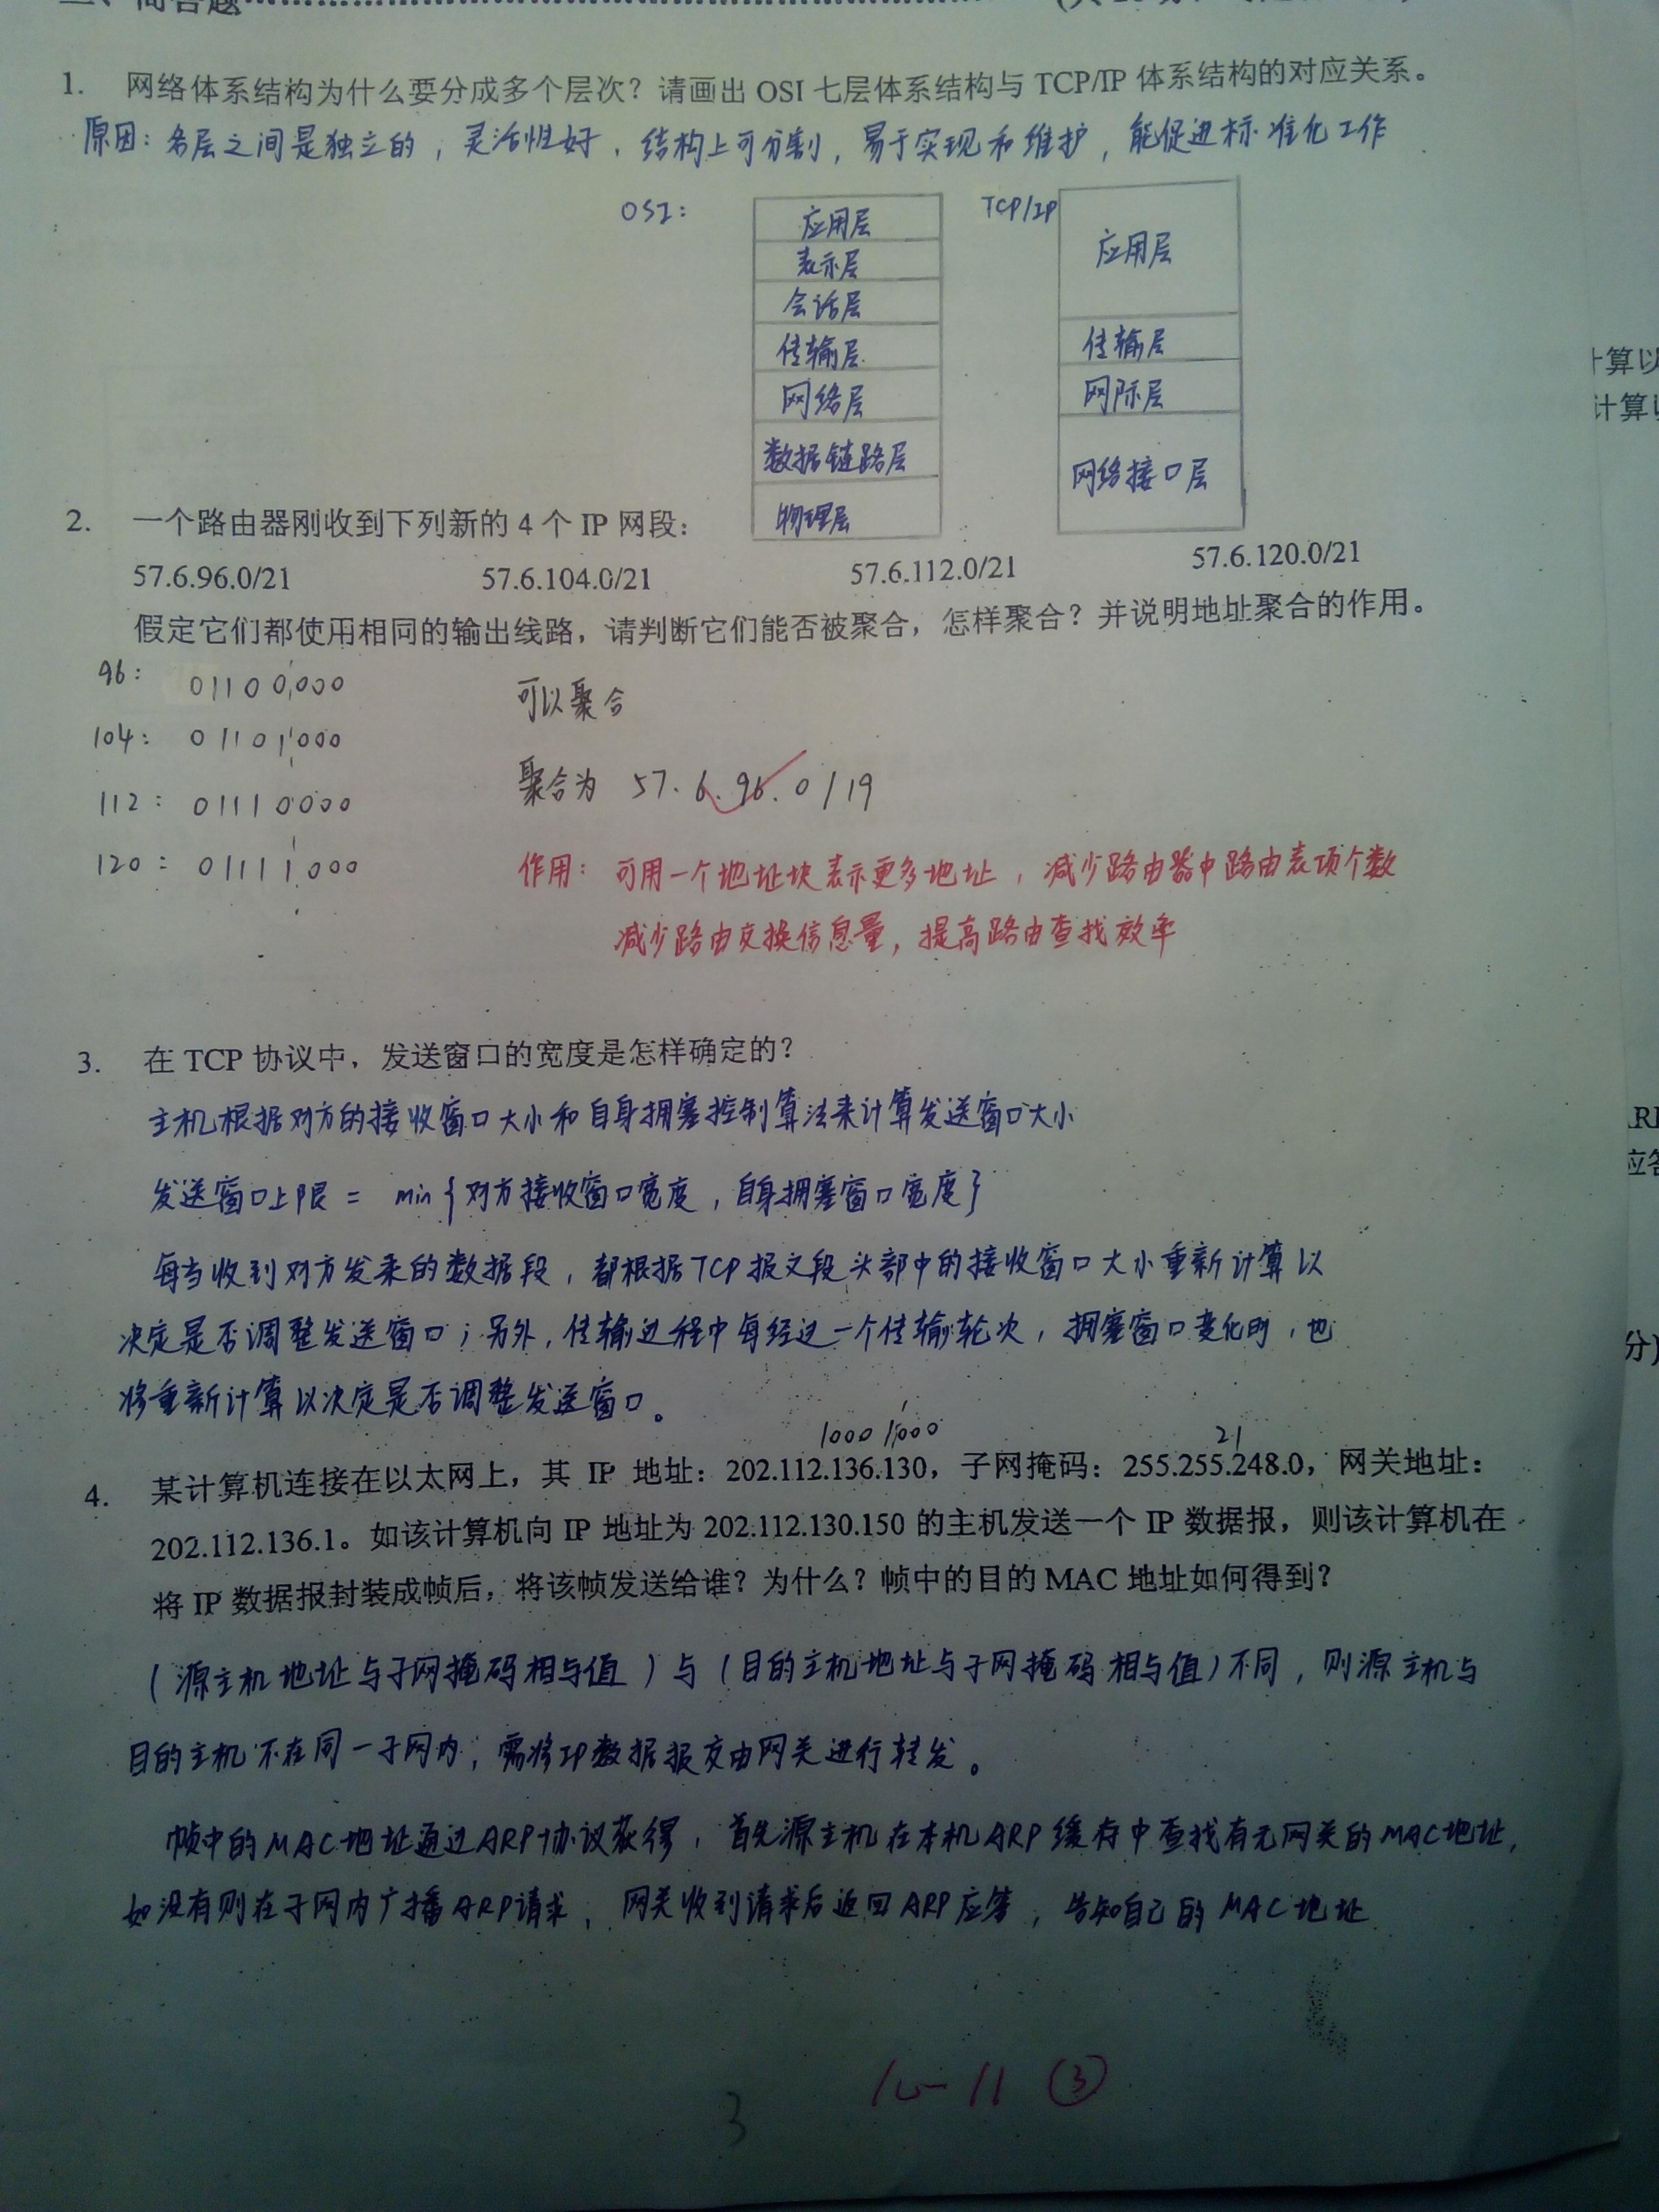 二、简答题
1. 网络体系结构为什么要分成多个层次？请画出 OSI 七层体系结构与 TCP/IP 体系结构的对应关系。
原因：各层之间是独立的，灵活性好，结构上可分割，易于实现和维护，能促进标准化工作
OSI：
应用层
表示层
会话层
传输层
网络层
数据链路层
物理层
TCP/IP
应用层
传输层
网际层
网络接口层
2. 一个路由器刚收到下列新的 4 个 IP 网段：
57.6.96.0/21 57.6.104.0/21 57.6.112.0/21 57.6.120.0/21
假定它们都使用相同的输出线路，请判断它们能否被聚合，怎样聚合？并说明地址聚合的作用。
96： 01100000
104： 01101000
112： 01110000
120： 01111000
可以聚合
聚合为 57.6.96.0/19
作用：可用一个地址块表示更多地址，减少路由器中路由表项个数
减少路由交换信息量，提高路由查找效率
3. 在 TCP 协议中，发送窗口的宽度是怎样确定的？
主机根据对方的接收窗口大小和自身拥塞控制算法来计算发送窗口大小
发送窗口上限 = min{对方接收窗口宽度，自身拥塞窗口宽度}
每当收到对方发来的数据段，都根据TCP报文段头部中的接收窗口大小重新计算以
决定是否调整发送窗口；另外，传输过程中每经过一个传输轮次，拥塞窗口变化时，也
将重新计算以决定是否调整发送窗口。
10001000
21
4. 某计算机连接在以太网上，其 IP 地址：202.112.136.130，子网掩码：255.255.248.0，网关地址：
202.112.136.1。如该计算机向 IP 地址为 202.112.130.150 的主机发送一个 IP 数据报，则该计算机在
将 IP 数据报封装成帧后，将该帧发送给谁？为什么？帧中的目的 MAC 地址如何得到？
（源主机地址与子网掩码相与值）与（目的主机地址与子网掩码相与值）不同，则源主机与
目的主机不在同一子网内，需将IP数据报交由网关进行转发。
帧中的MAC地址通过ARP协议获得，首先源主机在本机ARP缓存中查找有无网关的MAC地址，
如没有则在子网内广播ARP请求，网关收到请求后返回ARP应答，告知自己的MAC地址
3
10-11 ③
计算以
计算以
应答
分)